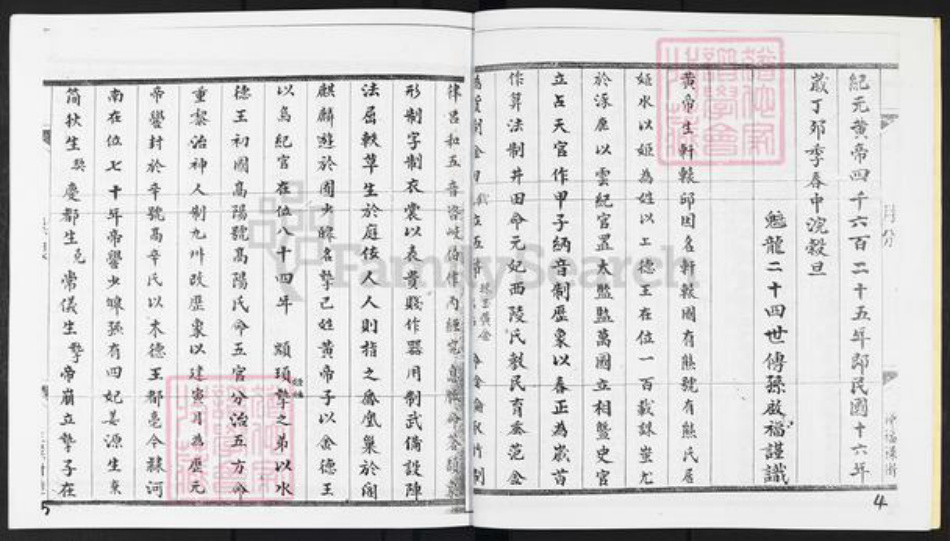 紀元黃帝四千六百二十五年即民國十六年
歲丁卯季春中浣穀旦
魁龍二十四世傳孫啟福謹識
黃帝生軒轅邱因名軒轅國有熊號有熊氏居
姬水以姬為姓以土德王在位一百載誅蚩尤
於涿鹿以雲紀官置太監監萬國立相暨史官
立占天官作甲子納音制歷象以春正為歲首
作算法制井田命元妃西陵氏教民育蚕范金
為貨制金刀 立五幣 珠玉黃金 命伶倫取竹制
律呂和五音咨岐伯作內經
形制字制衣裳以表貴賤作器用制武備設陣
法屈軼草生於庭佞人人則指之鳳凰巢於閣
麒麟遊於囿少皞名摯己姓黃帝子以金德王
以鳥紀官在位八十四年 顓頊摯之弟以水
德王初國高陽號高陽氏命五官分治五方命
重黎治神人制九州改歷象以建寅月為歷元
帝嚳封於辛號高辛氏以木德王都亳今隸河
南在位七十年帝嚳少皞孫有四妃姜源生棄
簡狄生契慶都生堯常儀生摯帝崩立摯子在
4
5
FamilySearch